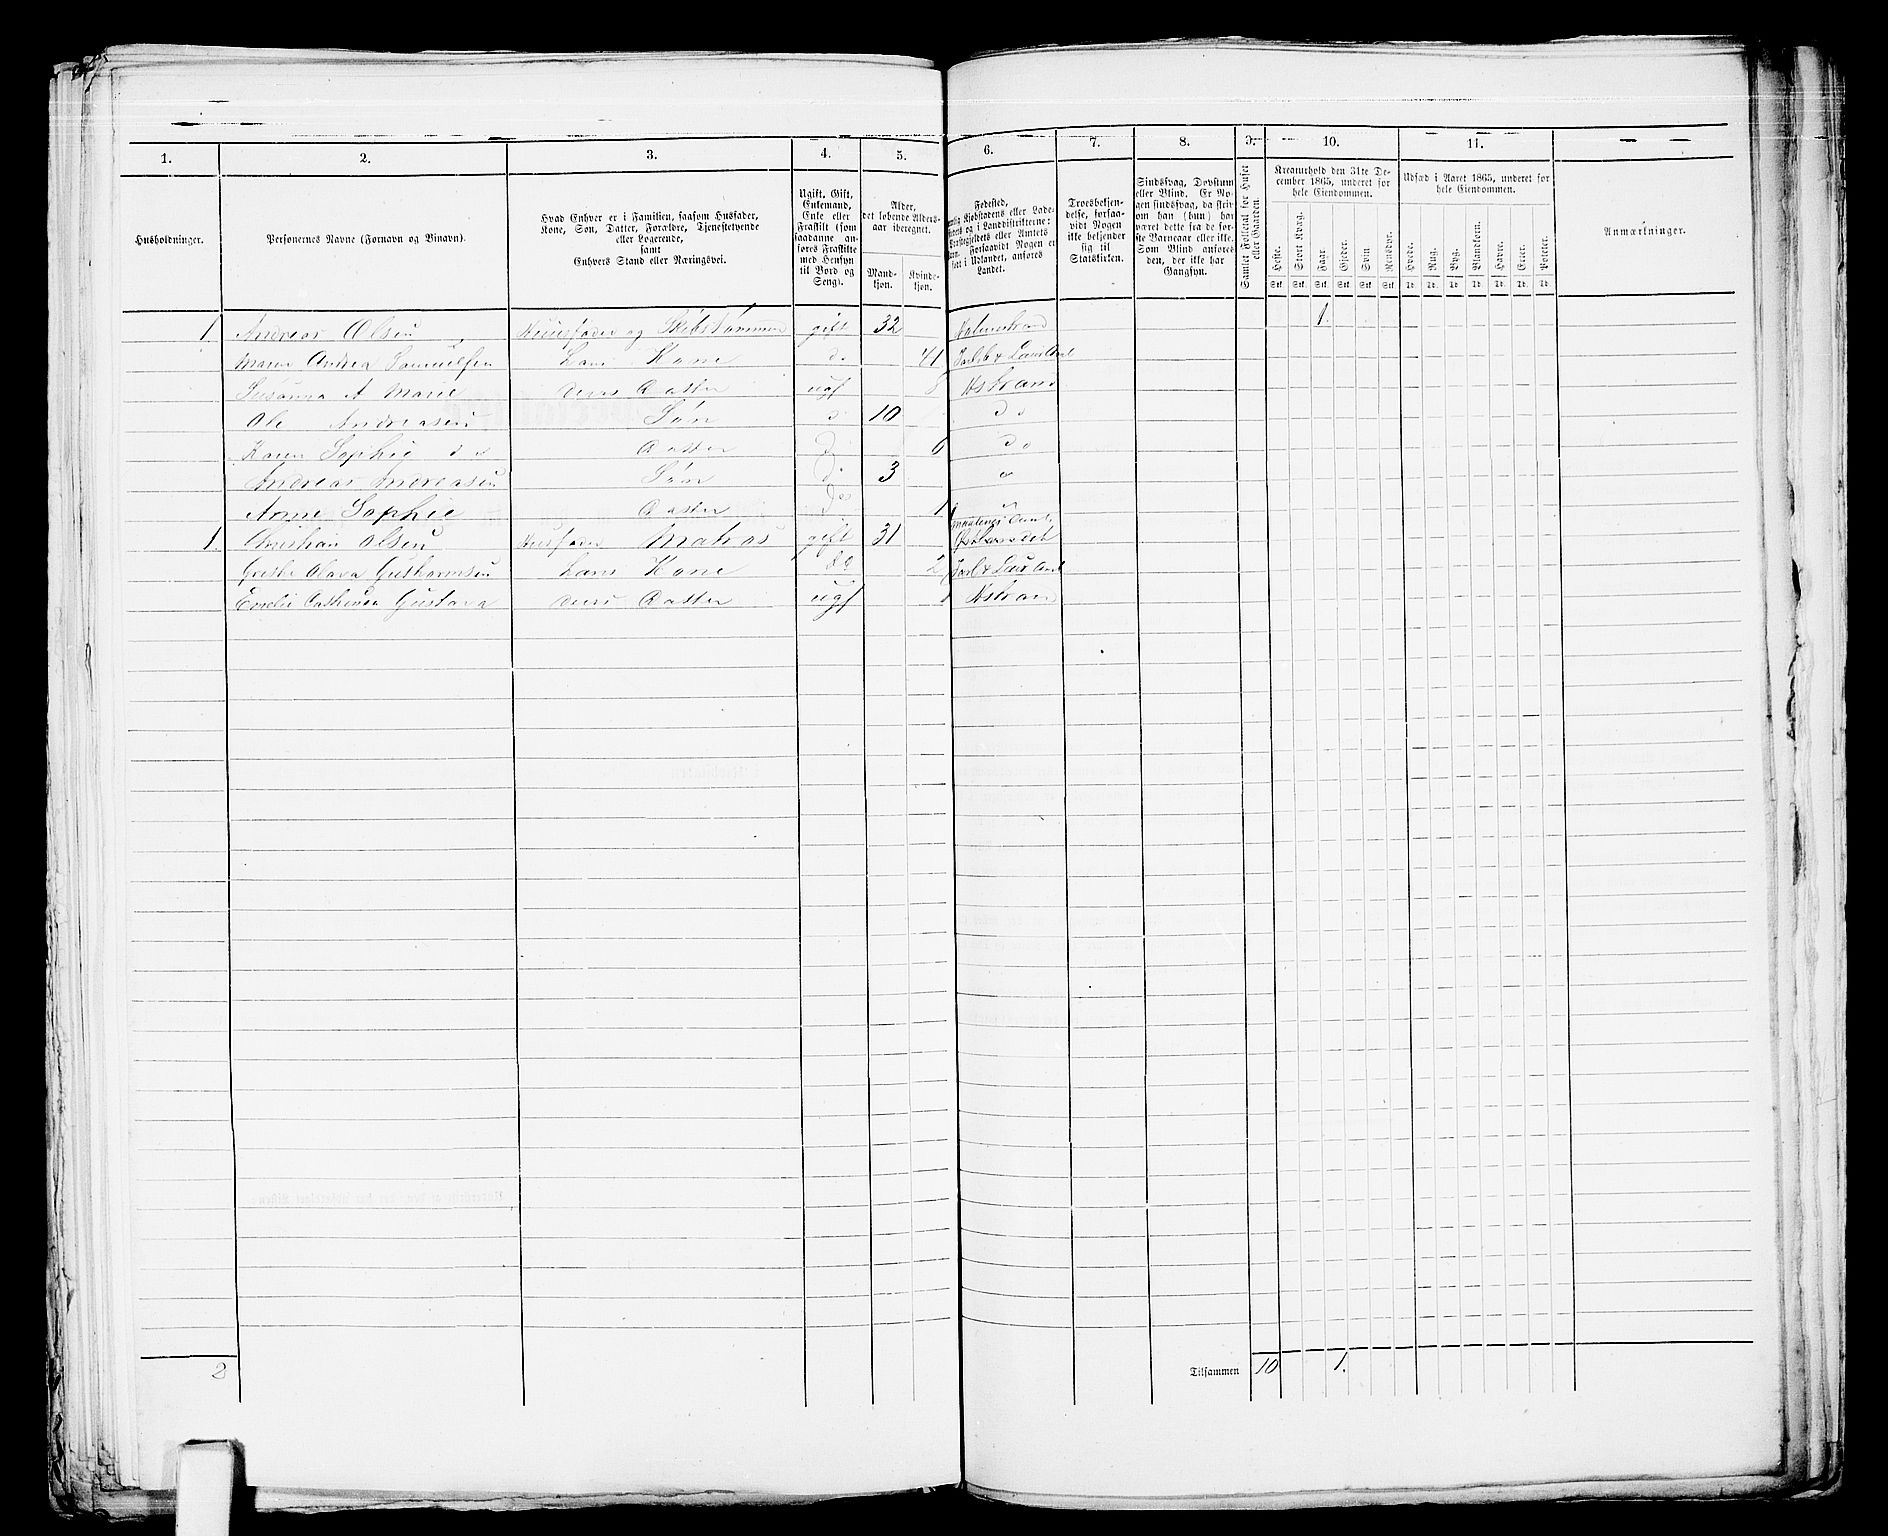 1. 2. 3. 4. 5. 6. 7. 8. 9. 10. 11.
Husholdninger.
Personernes Navne (Fornavn og Binavn).
Hvad Enhver er i Familien, saasom Husfader,
Kone, Søn, Datter, Forældre, Tjenestetyende
eller Logerende,
samt
Enhvers Stand eller Næringsvei.
Ugift, Gift,
Enkemand,
Enke eller
Fraskilt (som
saadanne an-
føres Fraskilte
med Hensyn
til Bord og
Seng).
Alder,
det løbende Alders-
aar iberegnet.
Mand-
kjøn.
Kvinde-
kjøn.
Fødested,
Kjøbstadens eller Lade-
og i Landdistrikterne:
Præstegjeldets eller Amtets
Navn. Forsaavidt Nogen er
født i Udlandet, anføres
Landet.
Troesbekjen-
delse, forsaa-
vidt Nogen
ikke bekjender
sig til
Statskirken.
Sindssvag, Døvstum
eller Blind. Er No-
gen sindssvag, da skri-
ves om han (hun) har
været dette fra de før-
ste Barneaar eller ikke.
Som Blind anføres
den, der ikke har
Gangsyn.
Samlet Folketal for Huset
eller Gaarden.
Kreaturhold den 31te De-
cember 1865, underet for
hele Eiendommen.
Heste. Stort Kvæg. Faar. Gjeder. Svin. Rensdyr.
Stk. Stk. Stk. Stk. Stk. Stk.
Udsæd i Aaret 1865, underet for
hele Eiendommen.
Hvede. Rug. Byg. Blandkorn. Havre. Erter. Poteter.
Td. Td. Td. Td. Td. Td. Td.
Anmærkninger.
1. Andreas Olsen Huusfader og Skibstømmermand gift 32 Holmestrand 1.
Maren Andrea Samuelsen Hans Kone do 41 Jarlsb & Laur Amt
Susanna A Marie deres Datter ugf 8 Hstrand
Ole Andreasen Søn d 10 do
Karen Sophie do Datter D 6 do
Andreas Andreasen Søn Do 3
Anne Sophie Datter Do 1
1. Christian Olsen Husfader Matros gift 31 Amt,
Olava Hans Kone do 2 Jarl & Laur Amt
Emelie Gustava deres Datter ugf 1 Hstrand
2
Tilsammen 10 1.